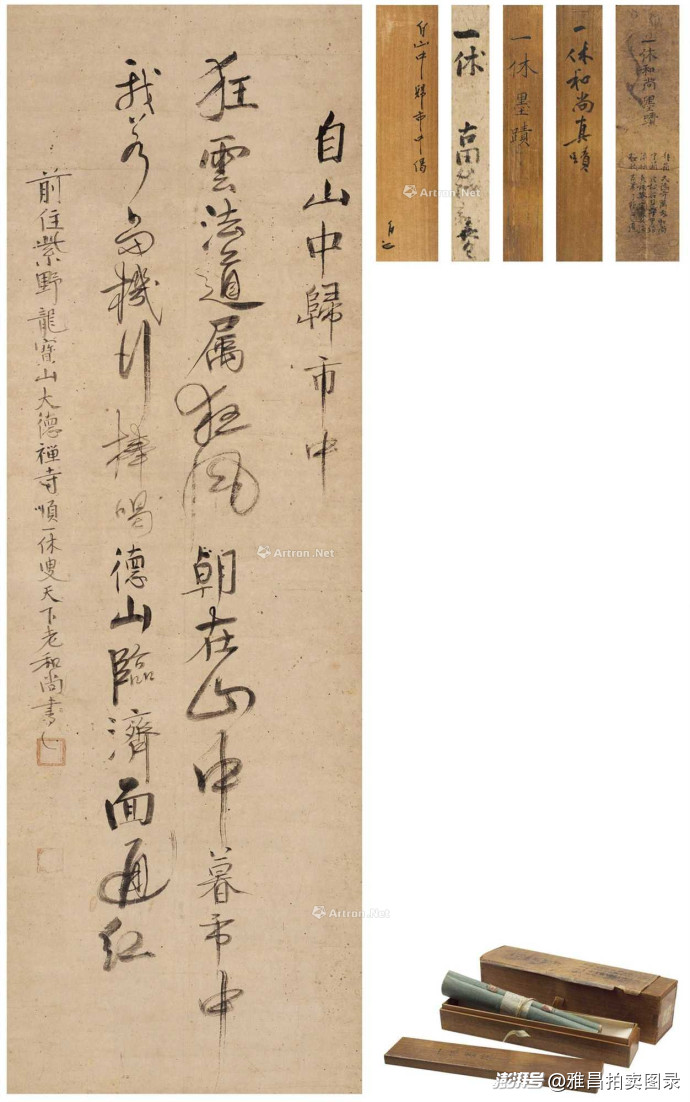 自山中歸市中
狂雲法道属狂風朝在山中暮市中
我若當機行棒喝德山臨濟面通紅
前住紫野龍寶山大德禅寺順一休叟天下老和尚書之
自山中歸市中偈
一休
一休墨蹟
一休和尚真蹟
一休和尚墨蹟
Artron.Net
Artron.Net
Artron.Net
澎湃号@雅昌拍卖图录